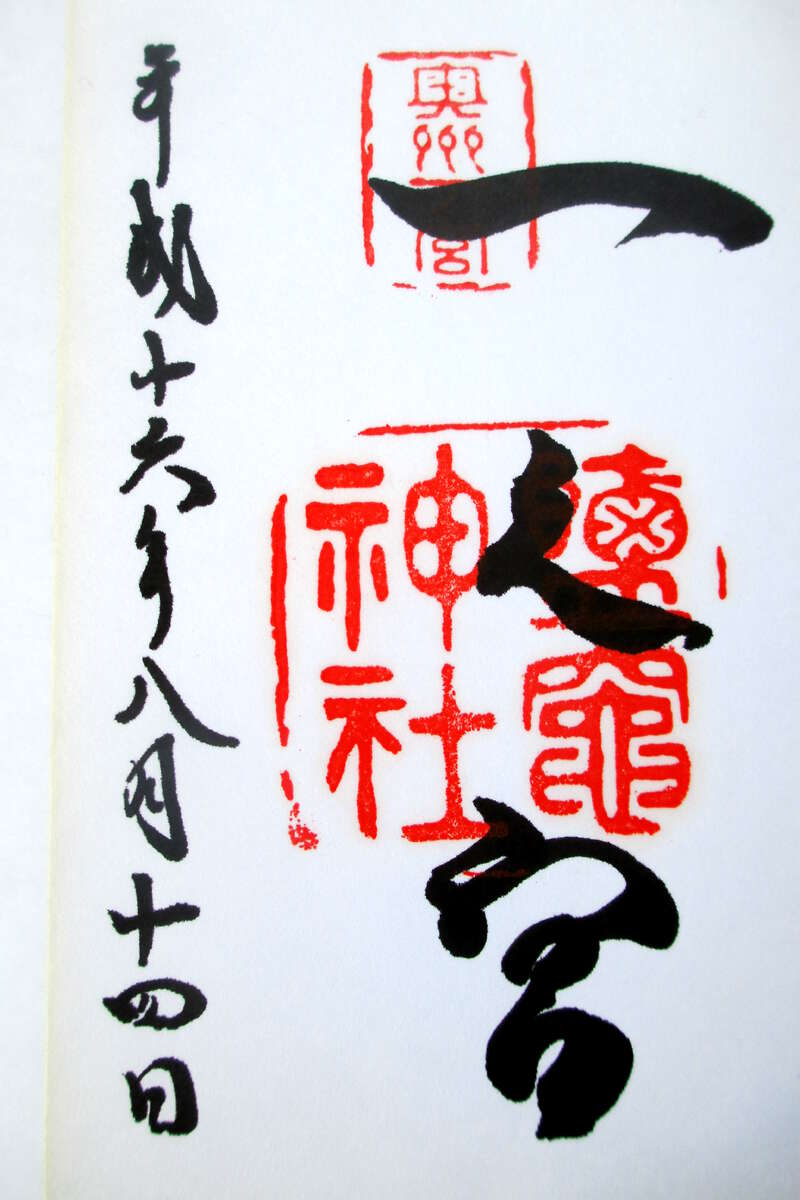 奥州一宮
一之宮
鹽竈
神社
平成十六年八月十四日